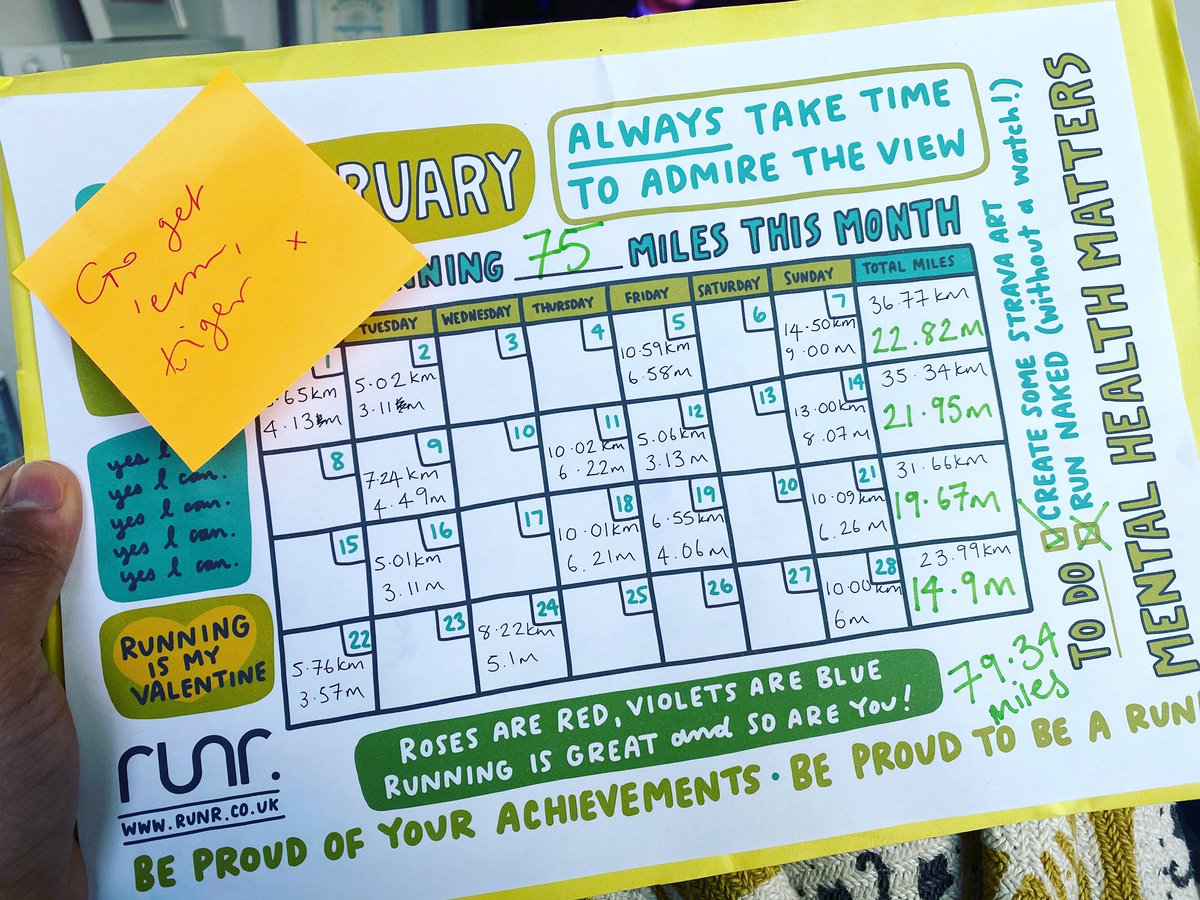 Go get
'em,
tiger x
RUARY
ALWAYS TAKE TIME
TO ADMIRE THE VIEW
NNING 75 MILES THIS MONTH
TUESDAY WEDNESDAY THURSDAY FRIDAY SATURDAY SUNDAY TOTAL MILES
1 2 3 4 5 6 7
.65km 5.02km 10.59km 14.50km 36.77km
4.13m 3.11m 6.58m 9.00m 22.82m
8 9 10 11 12 13 14
7.24km 10.02km 5.06km 13.00km 35.34km
4.49m 6.22m 3.13m 8.07m 21.95m
15 16 17 18 19 20 21
5.01km 10.01km 6.55km 10.09km 31.66km
3.11m 6.21m 4.06m 6.26m 19.67m
22 23 24 25 26 27 28
5.76km 8.22km 10.00km 23.99km
3.57m 5.1m 6m 14.9m
79.34
miles
yes I
yes I can.
yes I can.
yes I can.
yes I can.
RUNNING
IS MY
VALENTINE
runr.
WWW.RUNR.CO.UK
ROSES ARE RED, VIOLETS ARE BLUE
RUNNING IS GREAT and SO ARE YOU!
BE PROUD OF YOUR ACHIEVEMENTS • BE PROUD TO BE A RUN
TO DO
CREATE SOME STRAVA ART
RUN NAKED (without a watch!)
MENTAL HEALTH MATTERS